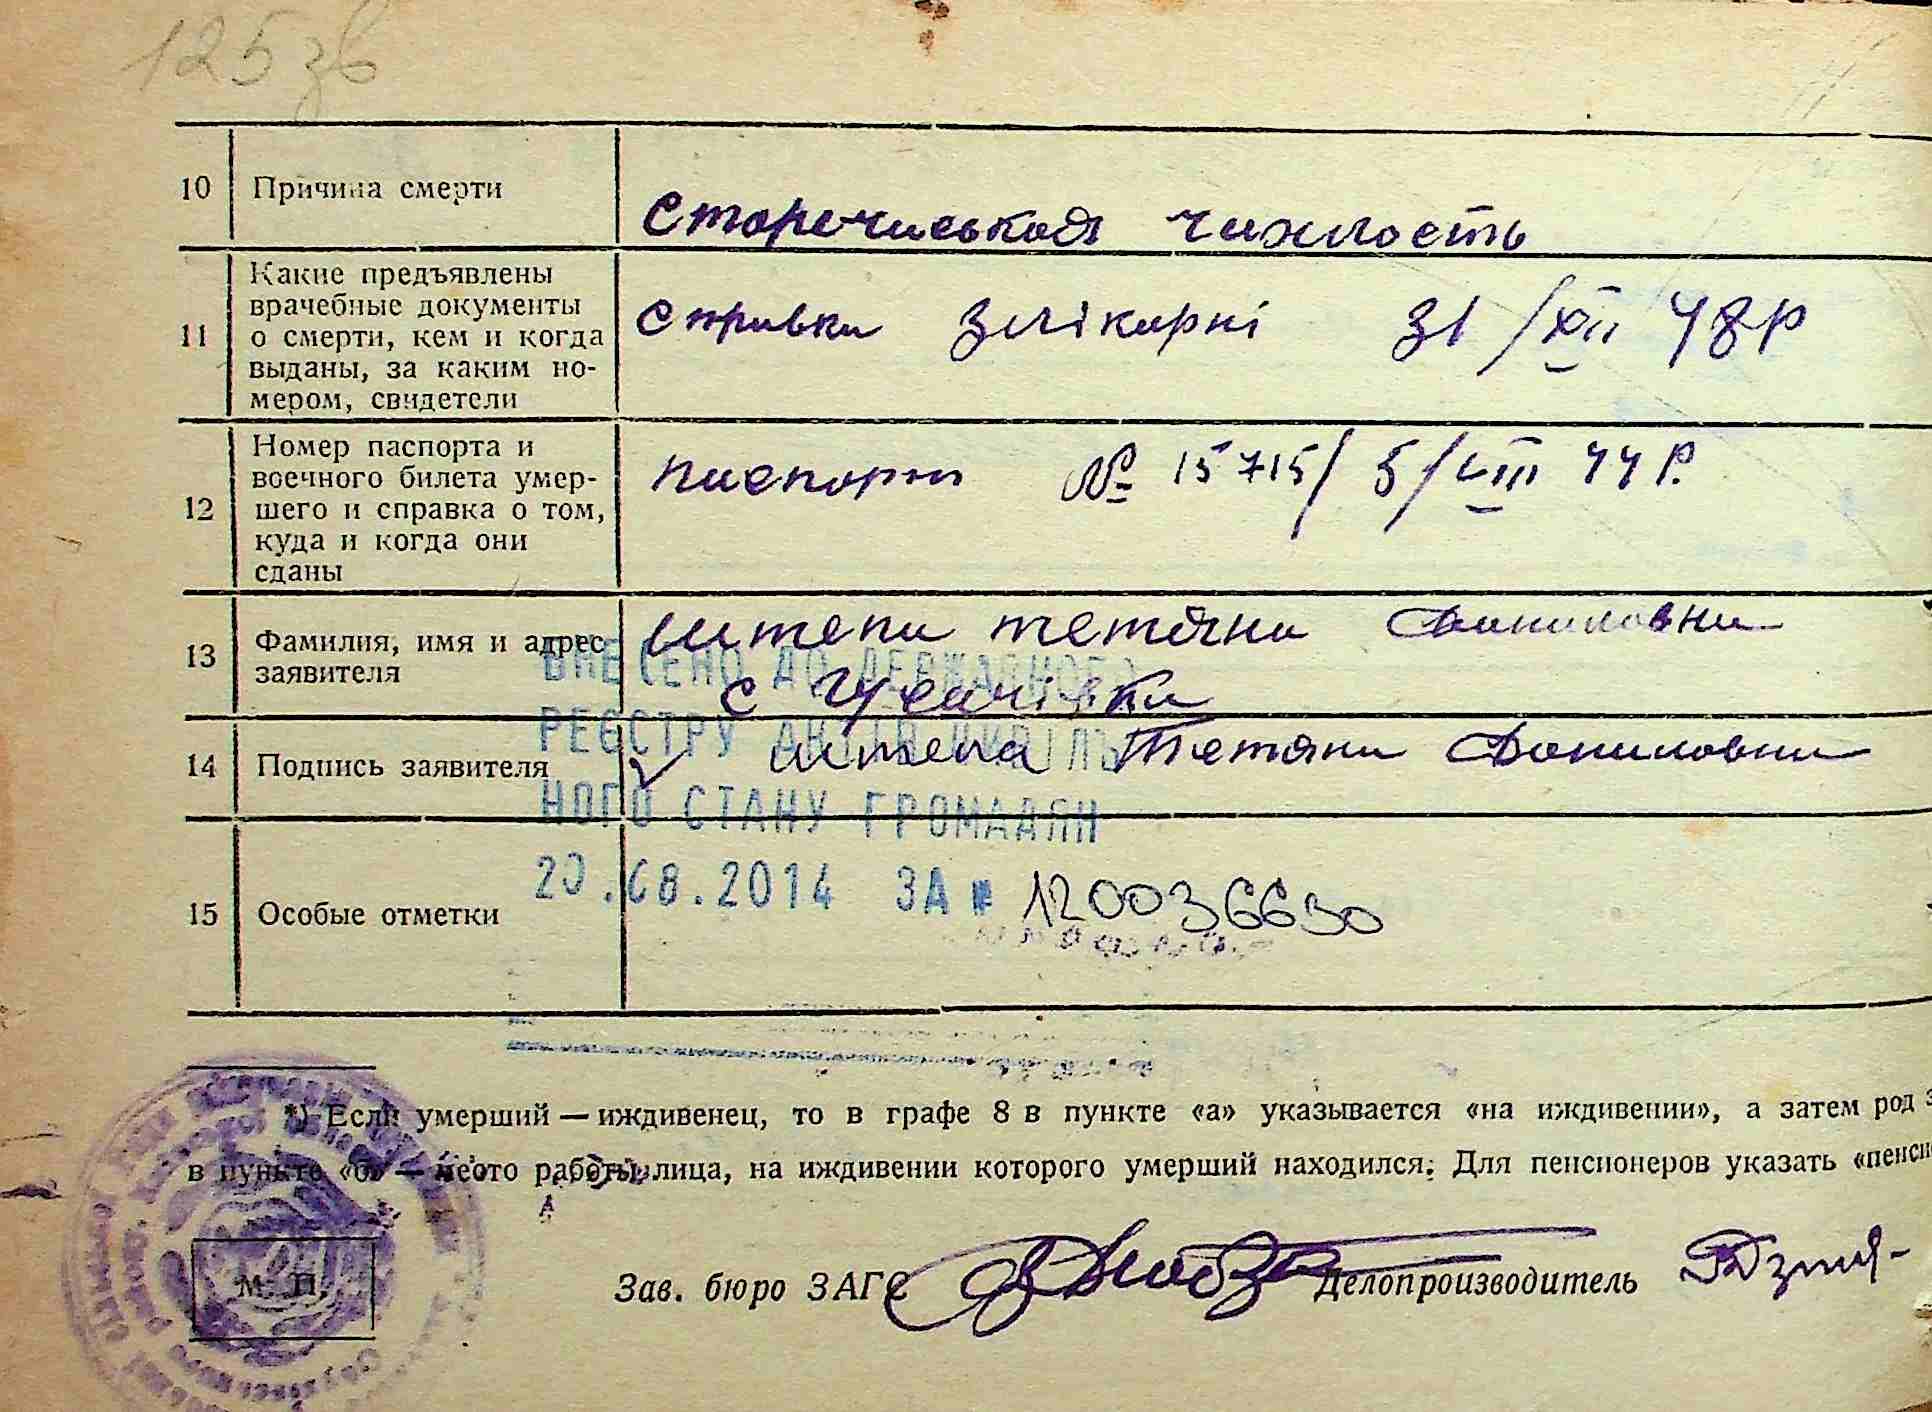 125 зв
10 Причина смерти
Старечиськая чихлость
11 Какие предъявлены
врачебные документы
о смерти, кем и когда
выданы, за каким но-
мером, свидетели
Справка з лікарні 31/XII 48р
12 Номер паспорта и
военного билета умер-
шего и справка о том,
куда и когда они
сданы
паспорт № 15715/5/VIII 44 р.
13 Фамилия, имя и адрес
заявителя
Штепа Тетяна Даниловна
с
14 Подпись заявителя
Штепа Тетяна Даниловна
ВНЕСЕНО ДО ДЕРЖАВНОГО
РЕЄСТРУ АКТІВ ЦИВІЛЬ
НОГО СТАНУ ГРОМАДЯН
20.08.2014 ЗА № 120036630
15 Особые отметки
*) Если умерший — иждивенец, то в графе 8 в пункте «а» указывается «на иждивении», а затем род з
в пункте «б» — место работы лица, на иждивении которого умерший находился. Для пенсионеров указать «пенси
М. П.
Зав. бюро ЗАГС
Делопроизводитель